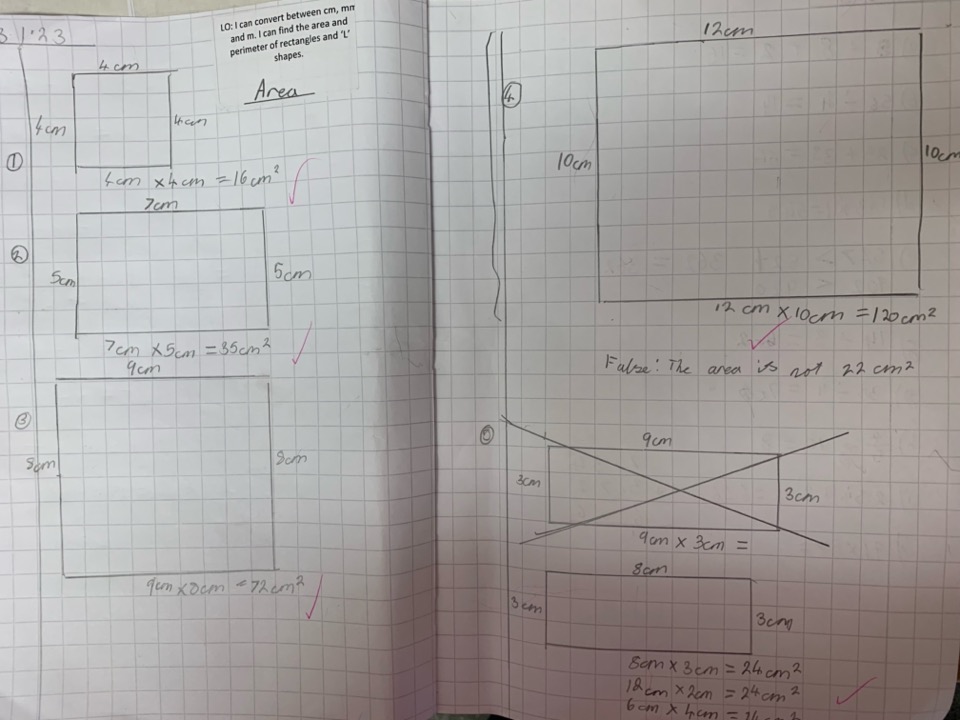 3 1.23
LO: I can convert between cm, mm
and m. I can find the area and
perimeter of rectangles and 'L'
shapes.
Area
4cm
4cm
4cm
①
4cm x 4cm = 16cm²
7cm
②
5cm
5cm
7cm x 5cm = 35cm²
9cm
③
8cm
8cm
9cm x 8cm = 72cm²
12cm
④
10cm
10cm
12 cm x 10cm = 120cm²
False: The area is not 22 cm²
9cm
3cm
3cm
9cm x 3cm =
8cm
3cm
3cm
8cm x 3cm = 24cm²
12cm x 2cm = 24cm²
6cm x 4cm =